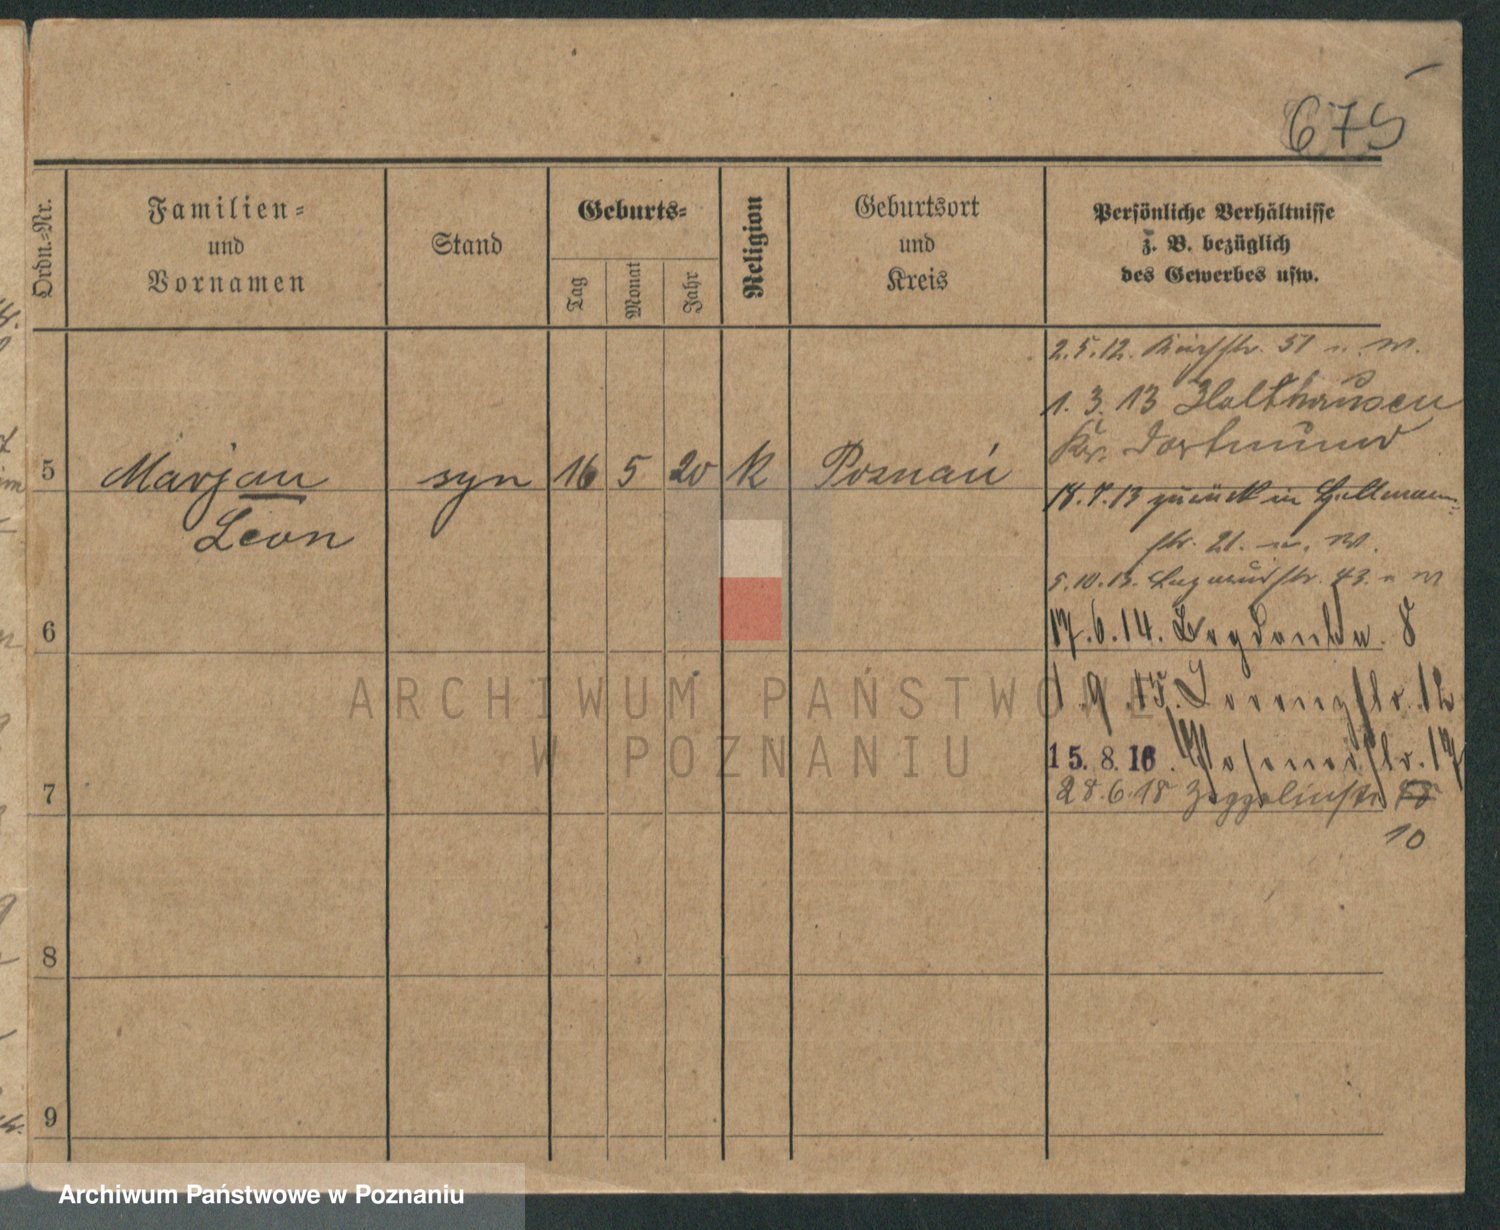 675
Ordn.-Nr.
Familien-
und
Vornamen
Stand
Geburts-
Tag
Monat
Jahr
Religion
Geburtsort
und
Kreis
Persönliche Verhältnisse
z. B. bezüglich
des Gewerbes usw.
2.5.12. Kirchstr. 51 n. W.
1.3.13 Holthausen
Kr. Dortmund
5 Marjan syn 16 5 20 k Poznań
Leon
18.7.13 zurück in
str. 21. n. W.
5.10.13. str. 43. n W
6
17.6.14. Bogdanka 8
1.9.15. Lorenzstr. 12
15.8.16. Posenerstr. 17
7
28.6.18 Zeppelinstr.
10
8
9
ARCHIWUM PAŃSTWOWE
W POZNANIU
Archiwum Państwowe w Poznaniu